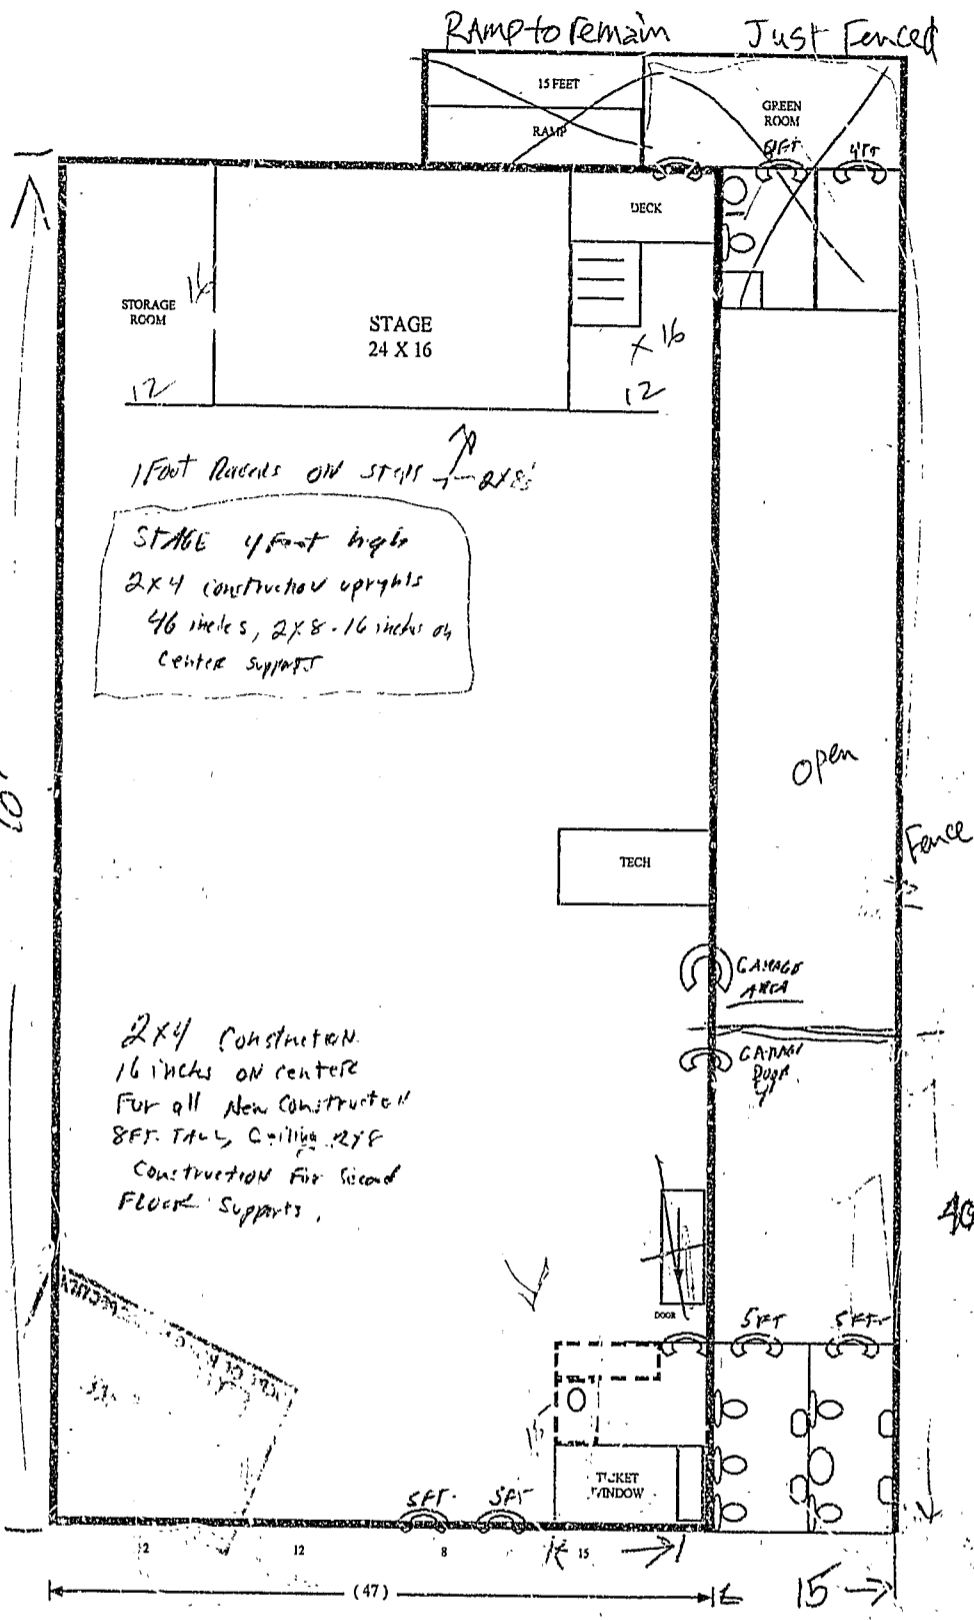 RAMP to remain
Just Fenced
15 FEET
RAMP
GREEN
ROOM
4FT
DECK
STORAGE
ROOM
16
STAGE
24 X 16
X 16
12
12
1 Foot ON steps 2x8's
STAGE 4 Foot high
2x4 construction uprights
46 inches, 2x8 - 16 inches on
Center support
open
Fence
TECH
GARAGE
AREA
GARAGE
Door
2x4 Construction
16 inches ON center
For all New Construction
8FT. TALL, Ceiling 2x8
Construction For Second
FLOOR Supports.
40
DOOR
5FT
5FT
TICKET
WINDOW
5FT.
5FT
12
8
15
(47)
15